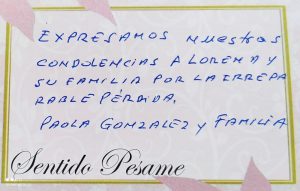 EXPRESAMOS NUESTRAS
CONDOLENCIAS A LORENA Y
SU FAMILIA POR LA IRREPA
RABLE PÉRDIDA.
PAOLA GONZALEZ Y FAMILIA
Sentido Pésame